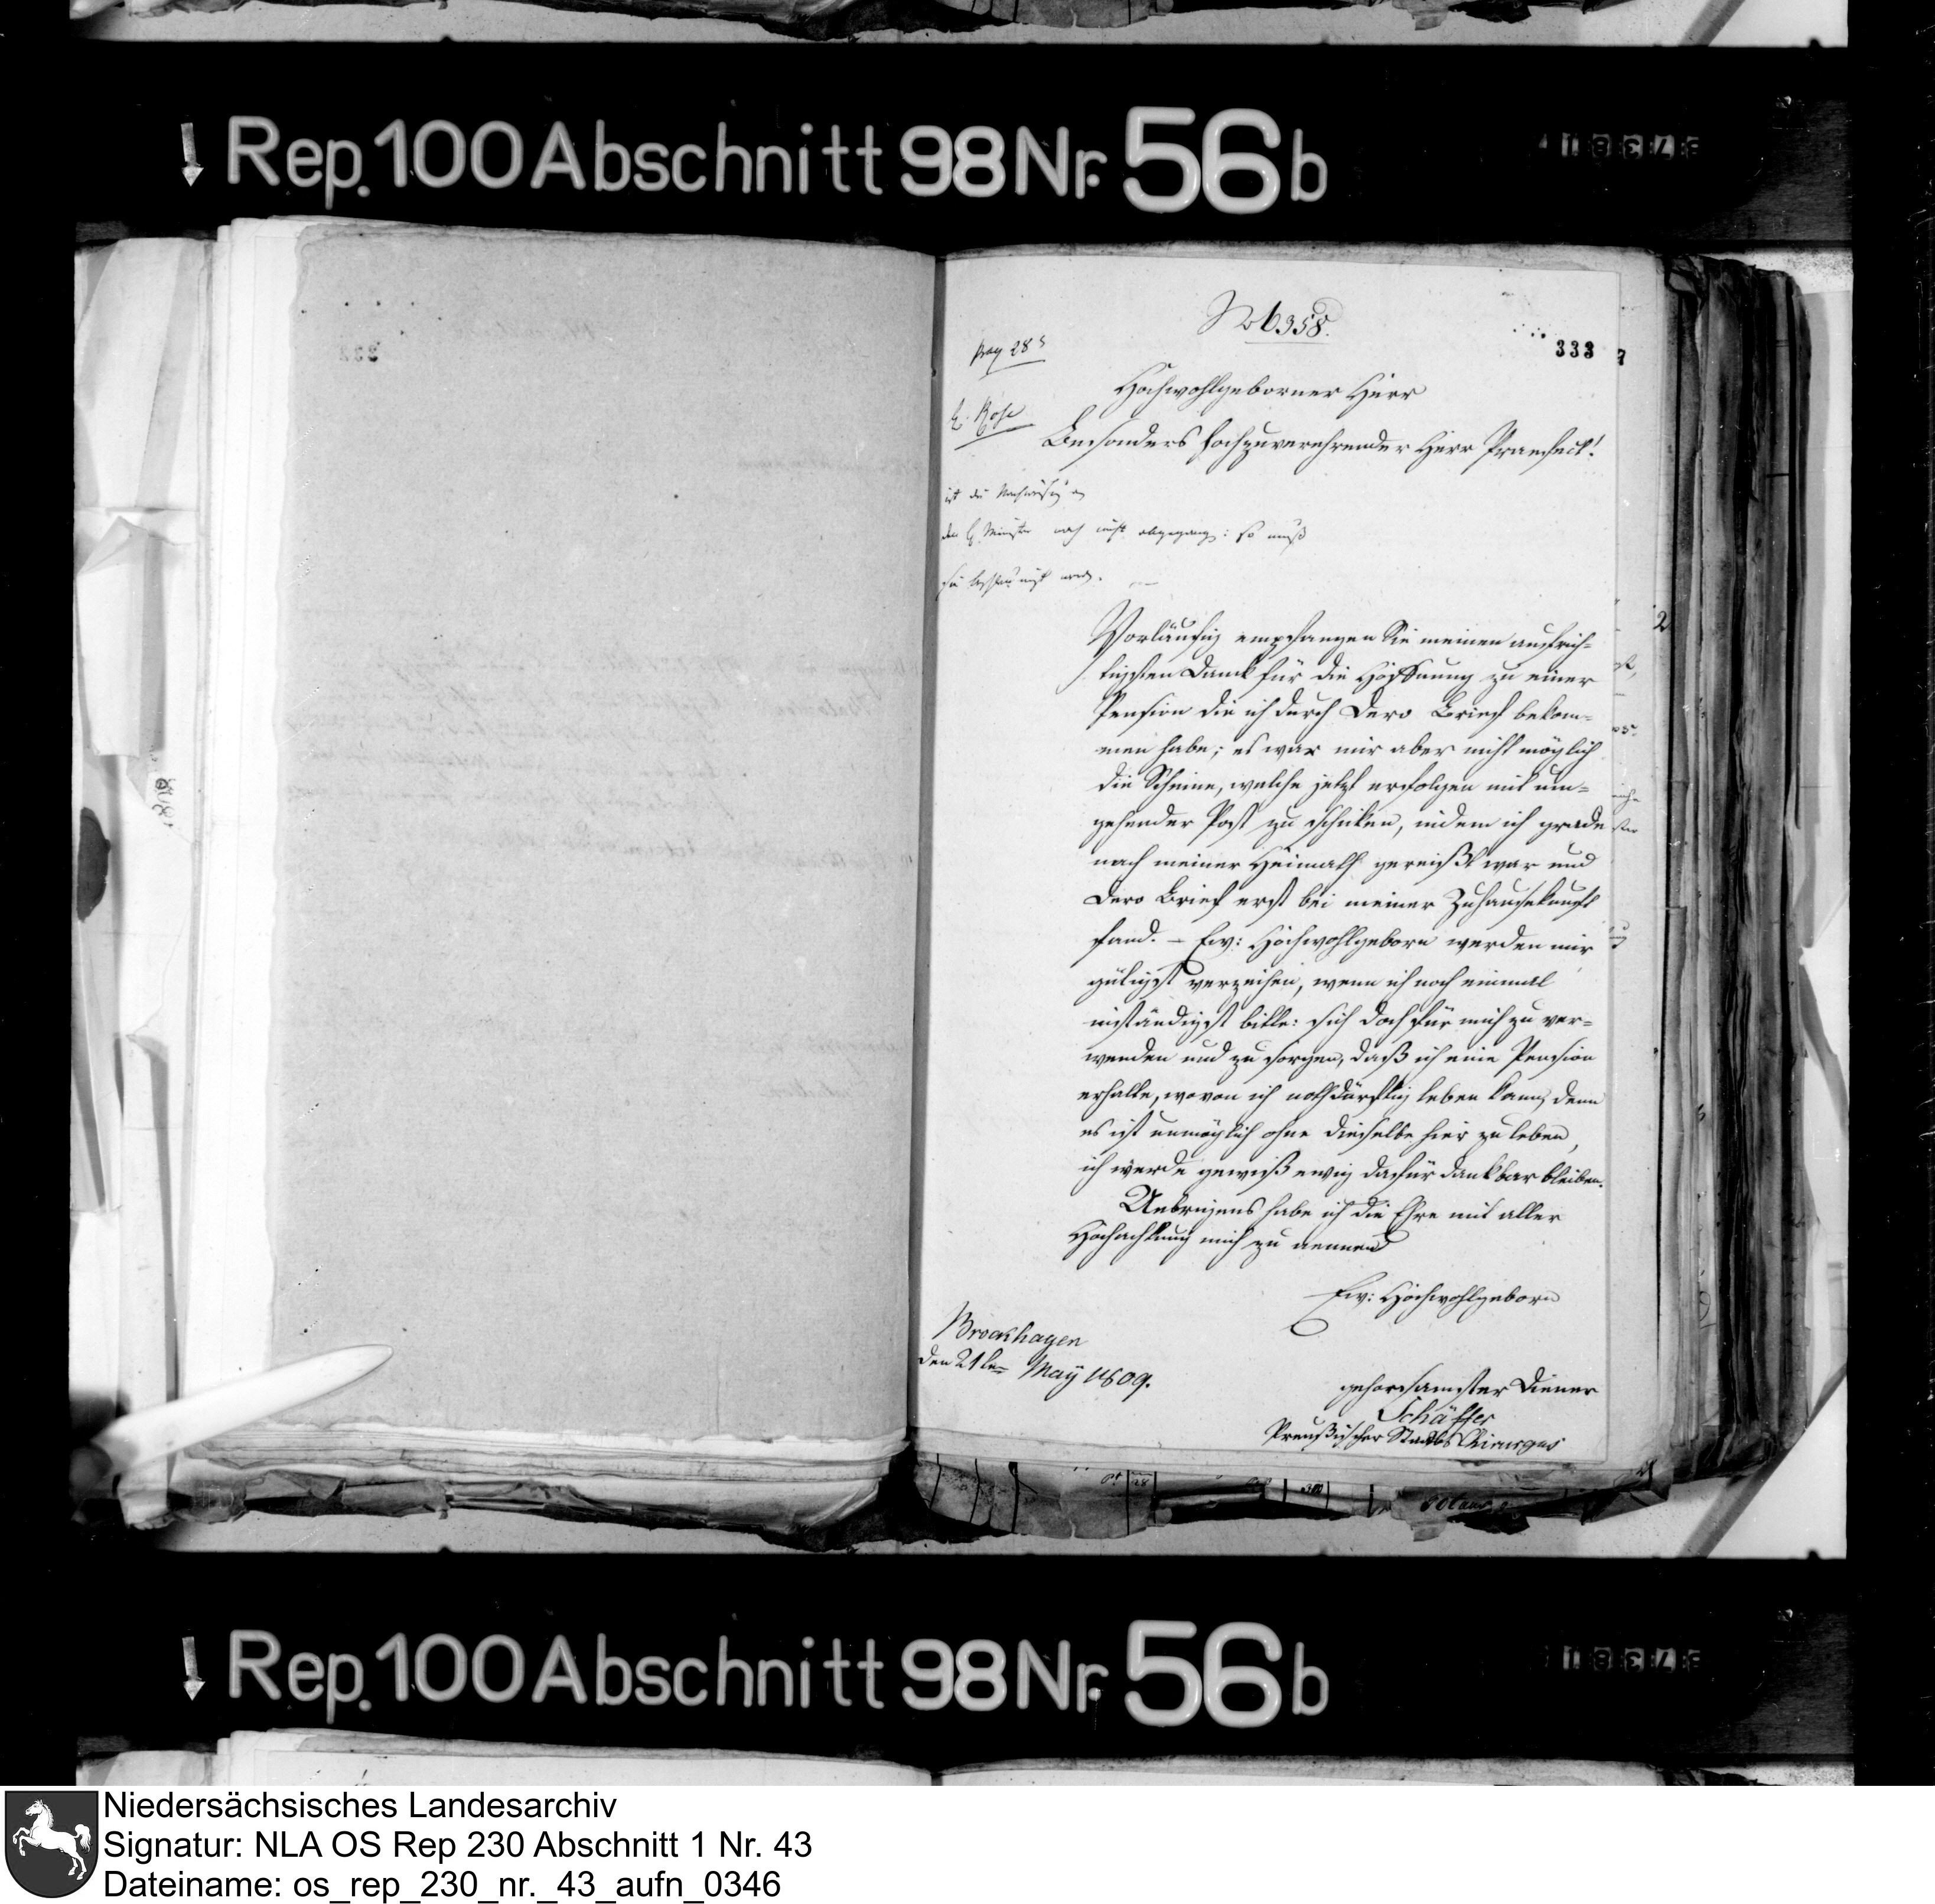 Rep. 100 Abschnitt 98 Nr. 56 b
No 6358.
333
Hochwohlgeborner Herr
Besonders hochzuverehrender Herr Praefect!
ist die Nachweisung an
den H. Minister noch nicht abgegangen: so muß
sie beschleunigt werden.
Vorläufig empfangen Sie meinen aufrich-
tigsten Dank für die Hoffnung zu einer
Pension die ich durch Dero Brief bekom-
men habe; es war mir aber nicht möglich
die Scheine, welche jetzt erfolgen mit um-
gehender Post zu schicken, indem ich grade
nach meiner Heimath gereißt war und
Dero Brief erst bei meiner Zuhausekunft
fand. – Ew: Hochwohlgeborn werden mir
gütigst verzeihen, wenn ich noch einmal
inständigst bitte: sich doch für mich zu ver-
wenden und zu sorgen, daß ich eine Pension
erhalte, wovon ich nothdürftig leben kann, denn
es ist unmöglich ohne dieselbe hier zu leben,
ich werde gewiß ewig dafür dankbar bleiben.
Uebrigens habe ich die Ehre mit aller
Hochachtung mich zu nennen
Ew: Hochwohlgeborn
Brockhagen
den 21ten May 1809.
gehorsamster Diener
Schäffer
Preußischer Staabs Chirurgus
Rep. 100 Abschnitt 98 Nr. 56 b
Niedersächsisches Landesarchiv
Signatur: NLA OS Rep 230 Abschnitt 1 Nr. 43
Dateiname: os_rep_230_nr._43_aufn_0346